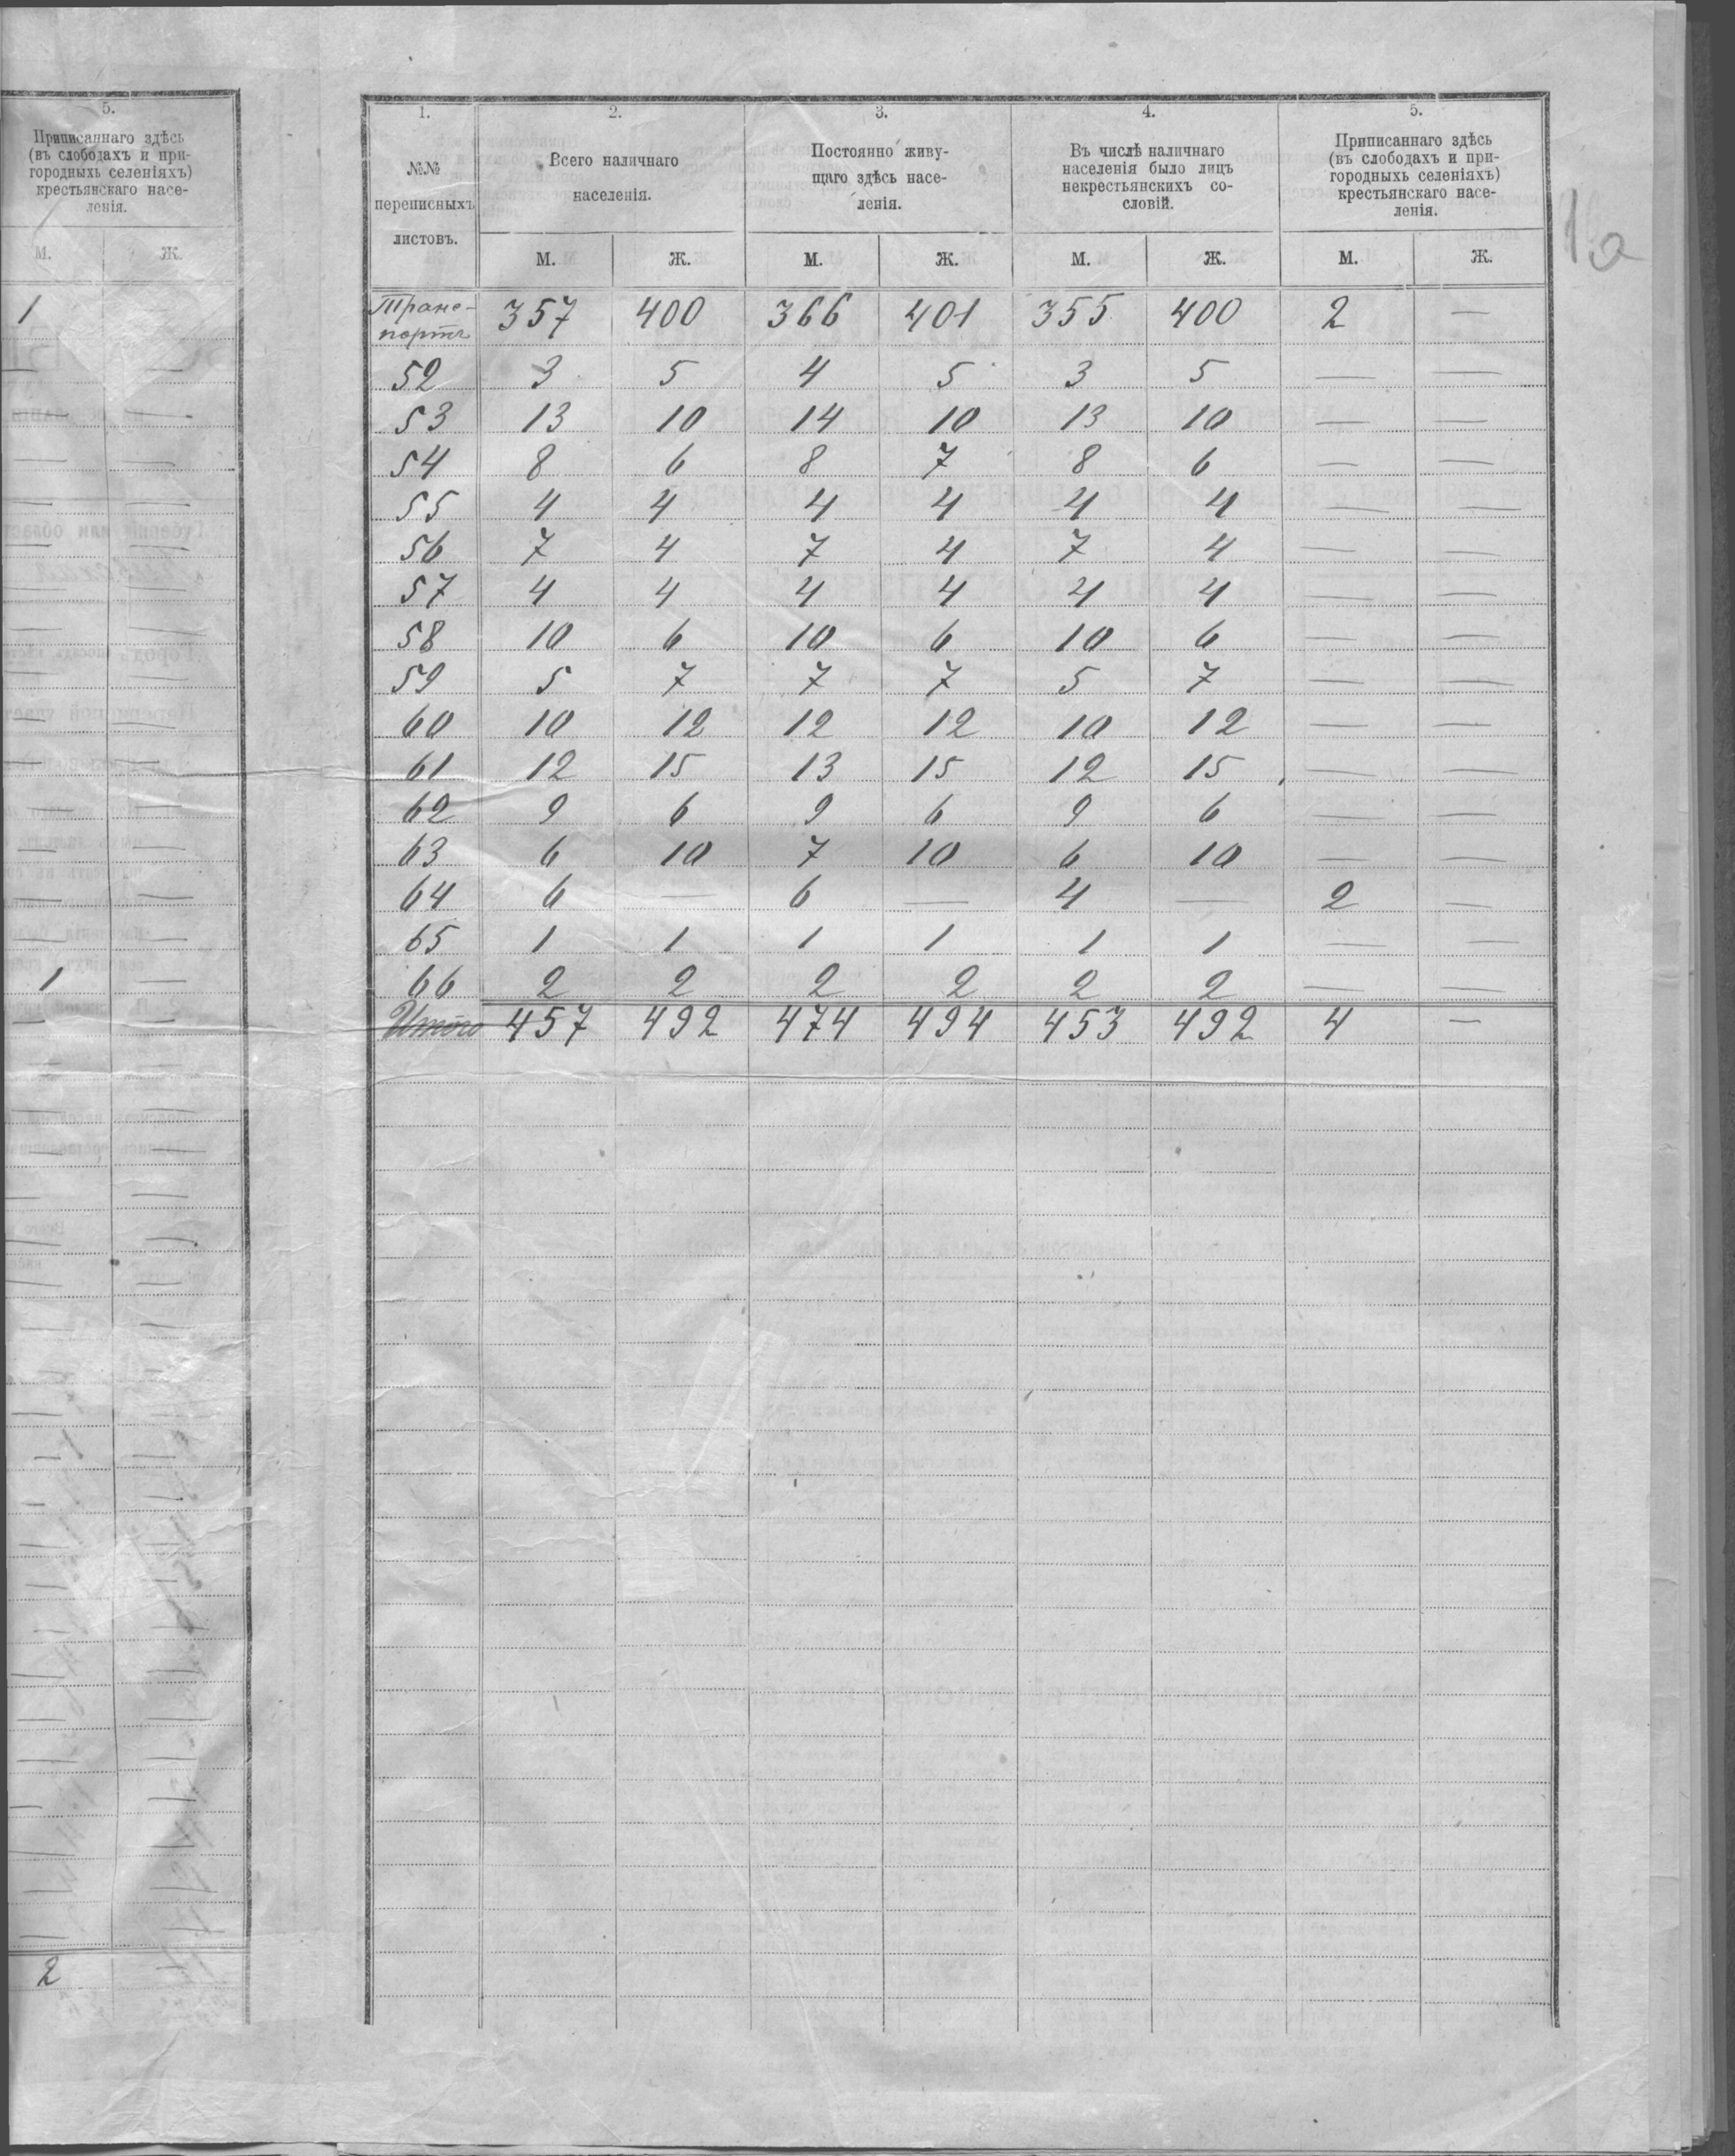 5.
Приписаннаго здѣсь
(въ слободахъ и при-
городныхъ селеніяхъ)
крестьянскаго насе-
ленія.
М. Ж.
1
— —
— —
— —
1 —
— —
2
1. 2. 3. 4. 5.
№№
переписныхъ
листовъ.
Всего наличнаго
населенія.
Постоянно живу-
щаго здѣсь насе-
ленія.
Въ числѣ наличнаго
населенія было лицъ
некрестьянскихъ со-
словій.
Приписаннаго здѣсь
(въ слободахъ и при-
городныхъ селеніяхъ)
крестьянскаго насе-
ленія.
М. Ж. М. Ж. М. Ж. М. Ж.
Транс-
портъ 357 400 366 401 355 400 2 —
52 3 5 4 5 3 5 — —
53 13 10 14 10 13 10 — —
54 8 6 8 7 8 6 — —
55 4 4 4 4 4 4 — —
56 7 4 7 4 7 4 — —
57 4 4 4 4 4 4 — —
58 10 6 10 6 10 6 — —
59 5 7 7 7 5 7 — —
60 10 12 12 12 10 12 — —
61 12 15 13 15 12 15 — —
62 9 6 9 6 9 6 — —
63 6 10 7 10 6 10 — —
64 6 — 6 — 4 — 2 —
65 1 1 1 1 1 1 — —
66 2 2 2 2 2 2 — —
Итого 457 492 474 494 453 492 4 —